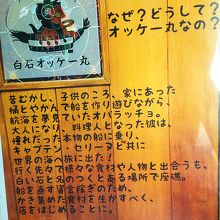 なぜ？どうして？
オッケー丸なの？
白石オッケー丸
昔むかし、子供のころ、家にあった
樽とやかんで船を作り遊びながら、
航海を夢見ていたオパラッチョ。
大人になり、料理人となった彼は、
憧れだった本物の船に乗り、
キャプテン・セリーヌと共に
世界の海への旅に出た！
行く先々で様々な食材や人物と出会うも、
白い石と名のつくとある場所で座礁。
船を直す資金稼ぎのため、
かき集めた食材を生かすべく、
店をはじめることに。